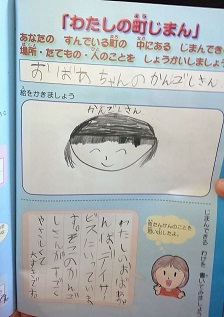 「わたしの町じまん」
あなたの すんでいる町の 中にある じまんできる
場所・たてもの・人のことを しょうかいしましょう
おばあちゃんのかんごしさん
絵をかきましょう
かんごしさん
じまんできる わけを 書いてみましょう
わたしのおばあち
ゃんは、デイサー
ビスにいっていま
す。そこのかんご
しさんが、すごく
やさしくて
大すきです。